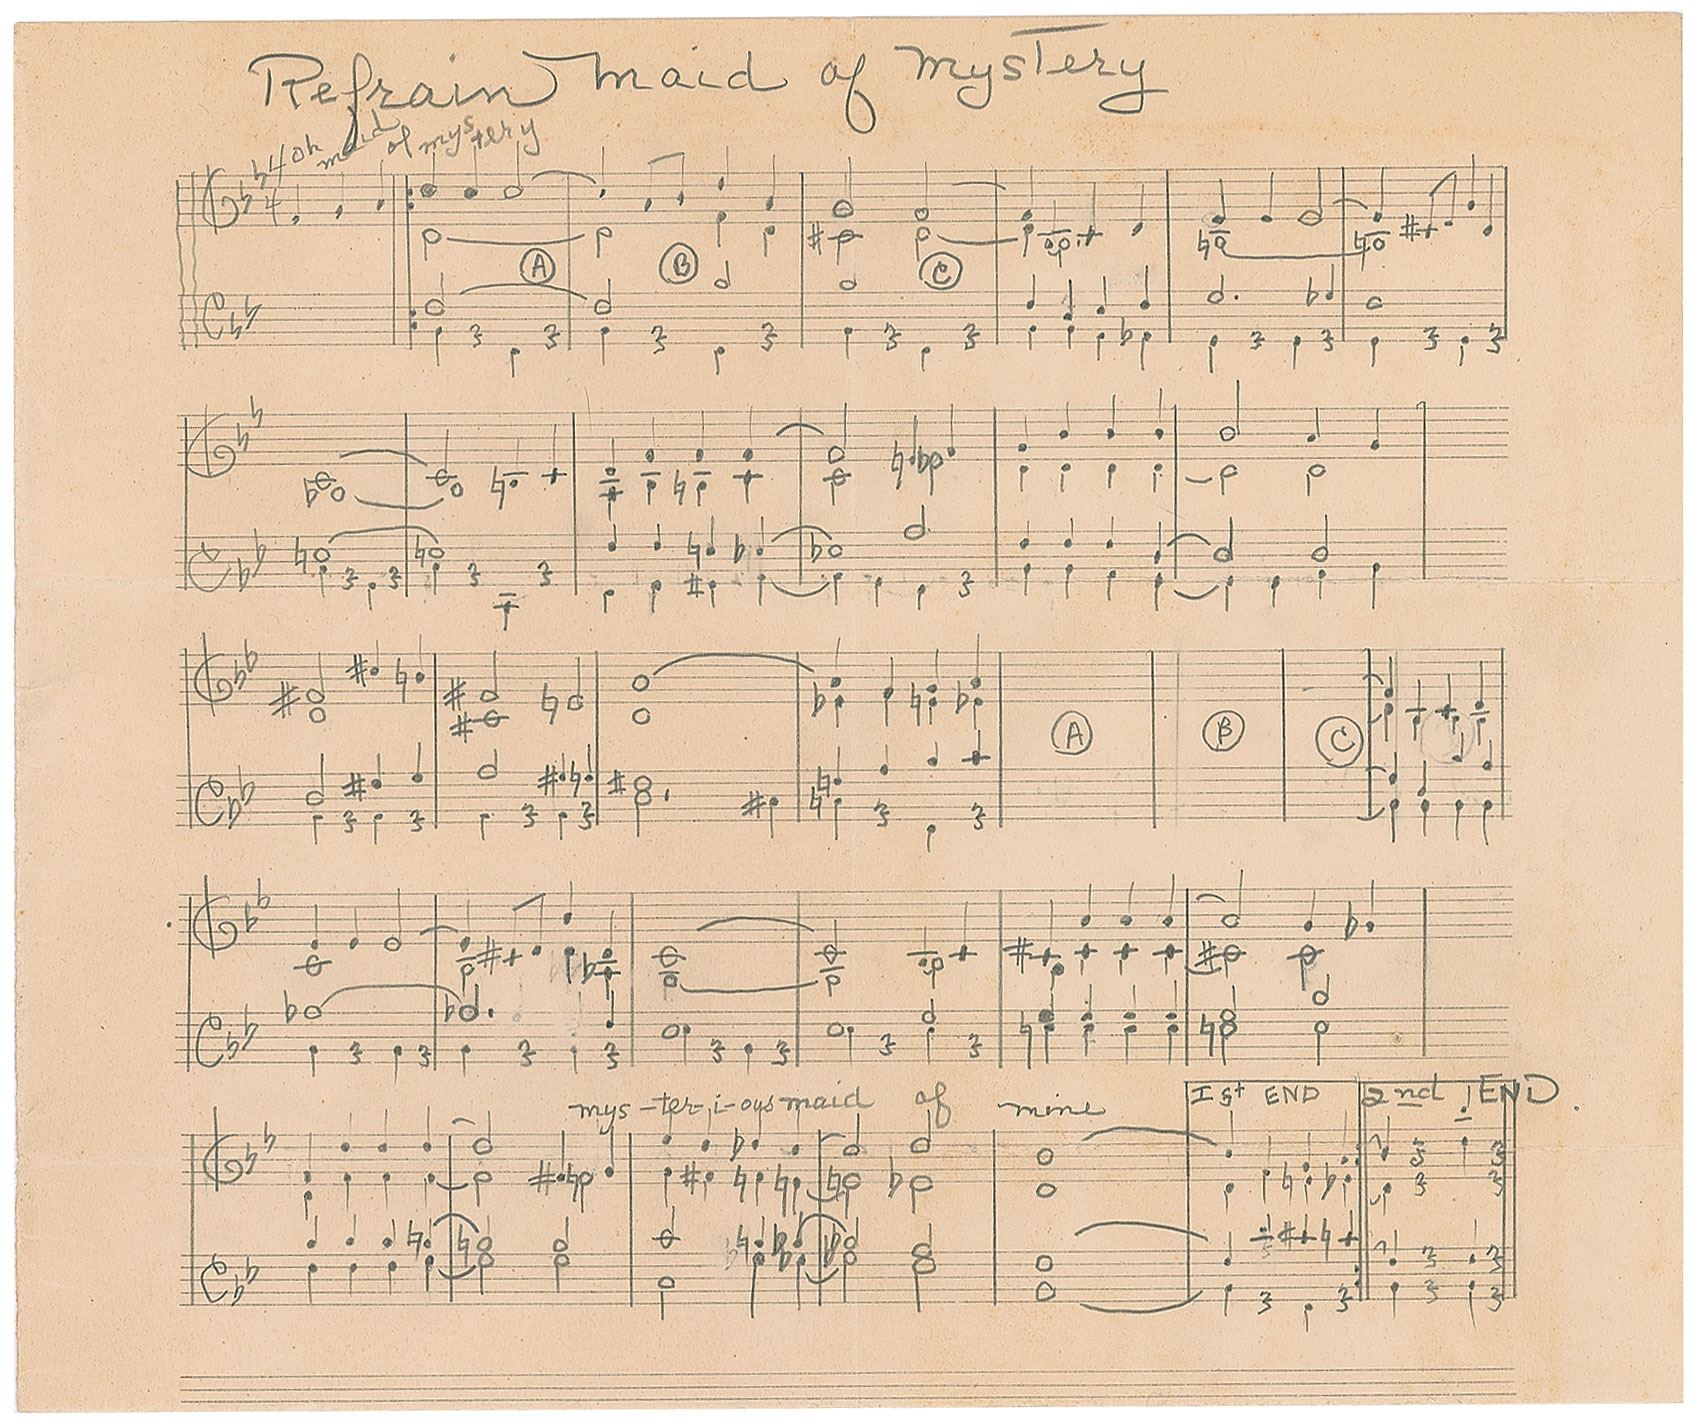 Refrain maid of mystery
4 oh maid of mystery
4
A B C
A B C
mys-ter-i-oys maid of mine
1st END 2nd END.